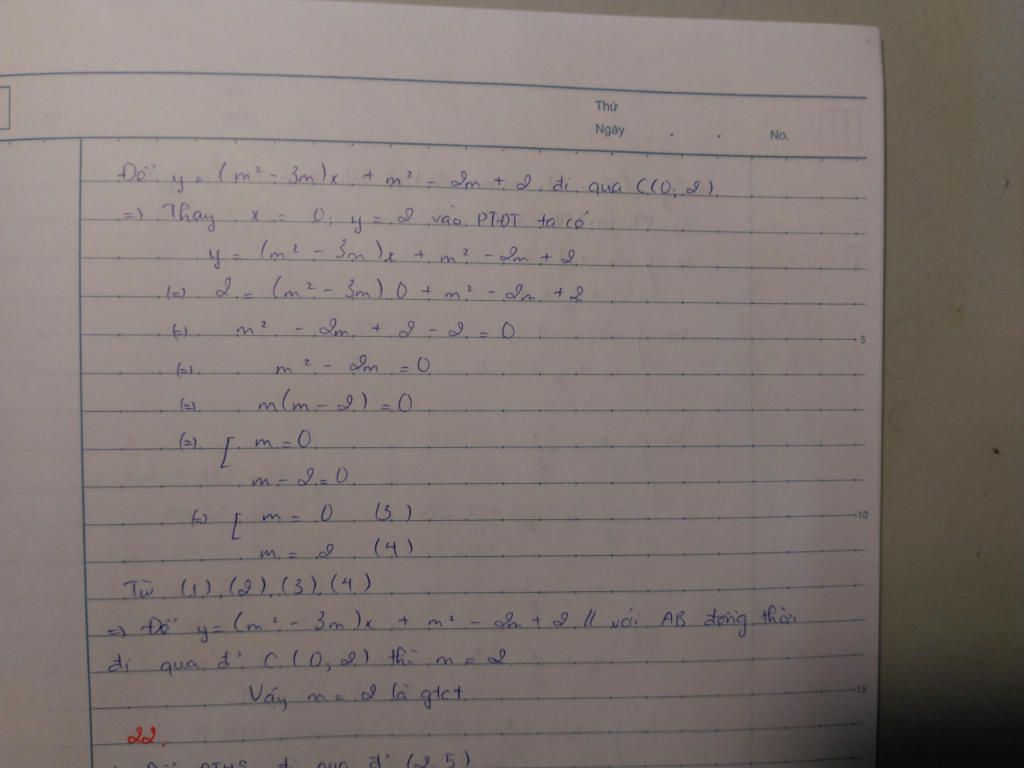 Thứ
Ngày . . No.
Để y = (m² - 3m)x + m² - 2m + 2 đi qua C(0; 2)
=) Thay x = 0; y = 2 vào PTĐT ta có:
y = (m² - 3m)x + m² - 2m + 2
(=) 2 = (m² - 3m).0 + m² - 2m + 2
(=) m² - 2m + 2 - 2 = 0
5
(=) m² - 2m = 0
(=) m(m - 2) = 0
(=) [ m = 0
m - 2 = 0
(=) [ m = 0 (3)
10
m = 2 (4)
Từ (1), (2), (3), (4)
=) Để y = (m² - 3m)x + m² - 2m + 2 // với AB đồng thời
đi qua đ' C (0, 2) thì m = 2
Vậy m = 2 là gtct
15
22.
đi qua đ' (2,5)